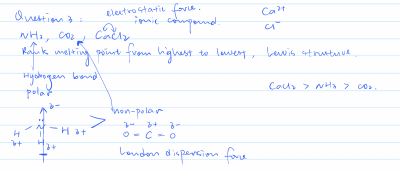 Question 3: electrostatic force. Ca²⁺
ionic compound. Cl⁻
NH₃, CO₂, CaCl₂
Rank melting point from highest to lowest, Lewis structure.
Hydrogen bond
polar
CaCl₂ > NH₃ > CO₂.
non-polar
δ- δ- δ+ δ-
H - N - H δ+ > O = C = O
δ+ H δ+
London dispersion force